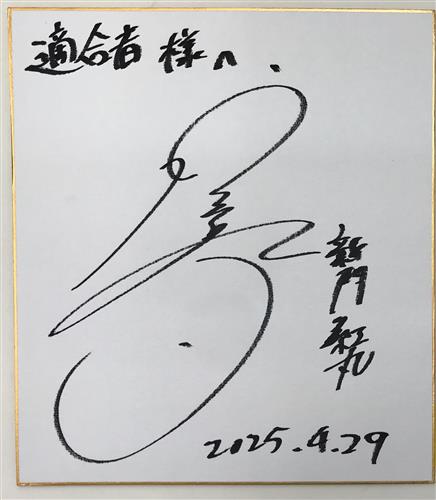 適合者 様へ.
新門 紅丸
2025.4.29